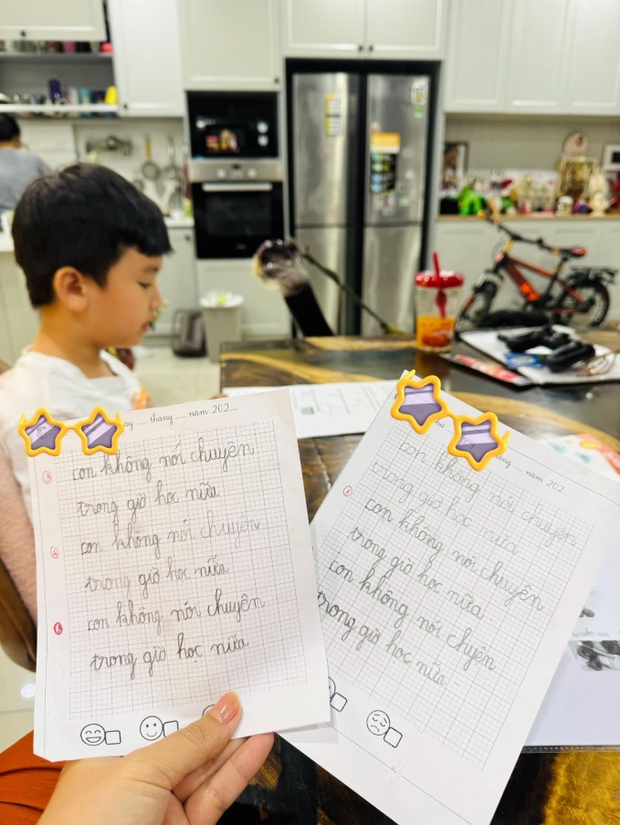 ay ... tháng ... năm 202...
3 con không nói chuyện
trong giờ học nữa
4 con không nói chuyện
trong giờ học nữa
5 con không nói chuyện
trong giờ học nữa
tháng ... năm 202...
con không nói chuyện
trong giờ học nữa
1 con không nói chuyện
trong giờ học nữa
con không nói chuyện
trong giờ học nữa